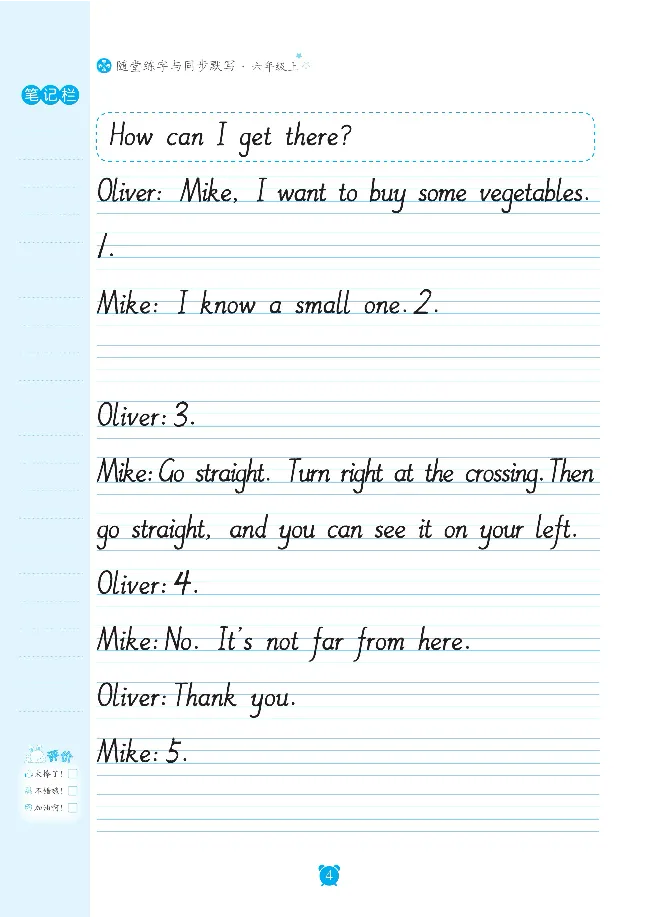 随堂练字与同步默写·六年级上
笔记栏
How can I get there?
Oliver: Mike, I want to buy some vegetables.
1.
Mike: I know a small one. 2.
Oliver: 3.
Mike: Go straight. Turn right at the crossing. Then
go straight, and you can see it on your left.
Oliver: 4.
Mike: No. It's not far from here.
Oliver: Thank you.
Mike: 5.
评价
太棒了!
不错哦!
加油啊!
4